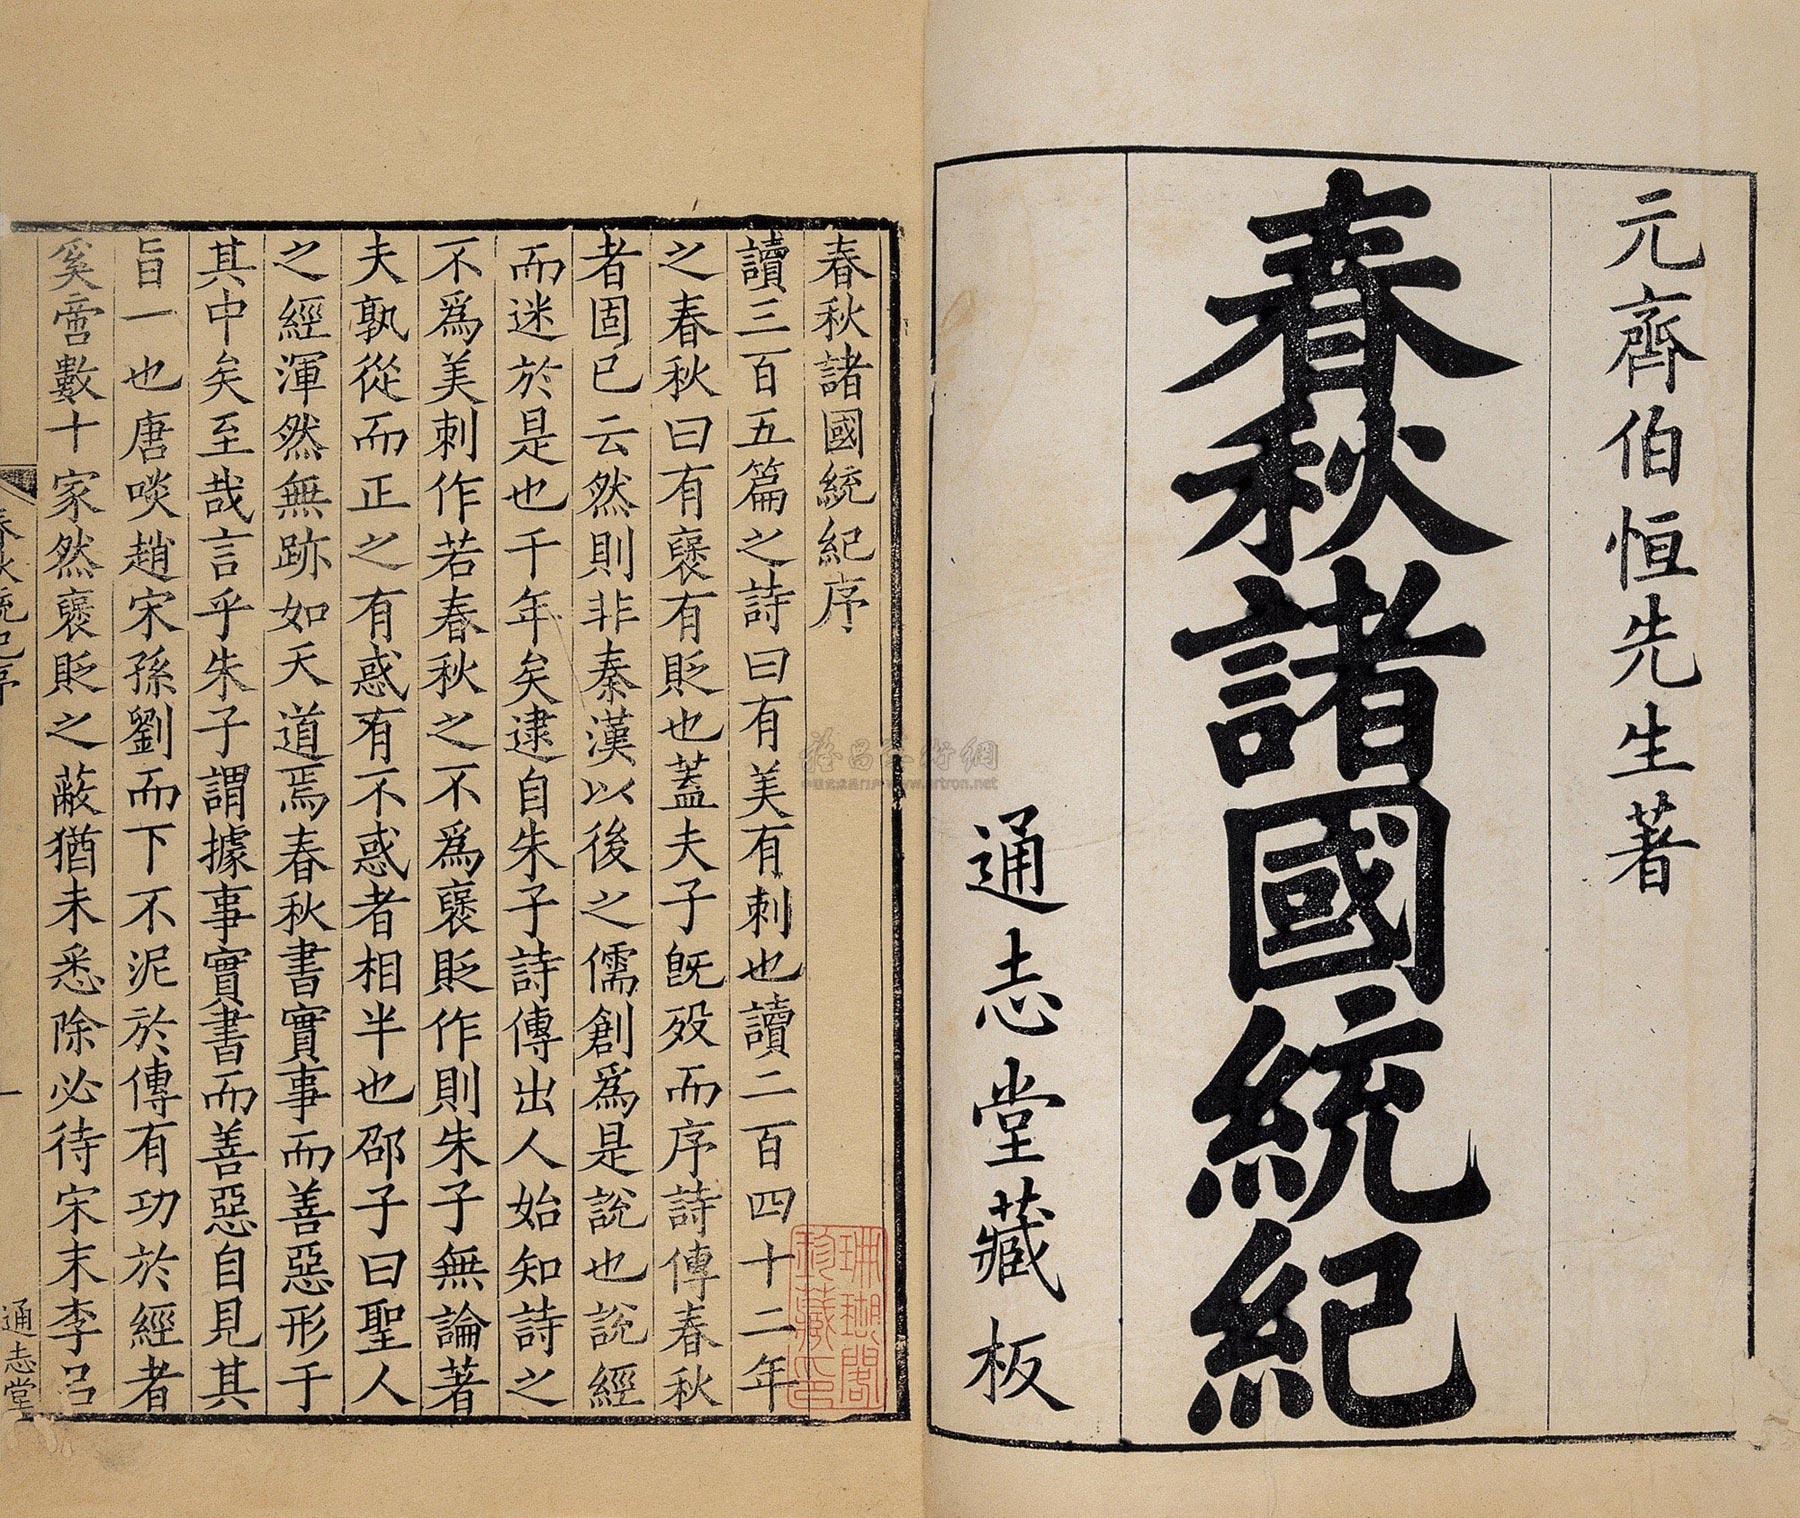 元齊伯恒先生著
春秋諸國統紀
通志堂藏板
春秋諸國統紀序
讀三百五篇之詩曰有美有刺也讀二百四十二年
之春秋曰有襃有貶也蓋夫子旣歿而序詩傳春秋
者固已云然則非秦漢以後之儒創爲是說也說經
而迷於是也千年矣逮自朱子詩傳出人始知詩之
不爲美刺作若春秋之不爲襃貶作則朱子無論著
夫孰從而正之有惑有不惑者相半也邵子曰聖人
之經渾然無跡如天道焉春秋書實事而善惡形于
其中矣至哉言乎朱子謂據事實書而善惡自見其
旨一也唐啖趙宋孫劉而下不泥於傳有功於經者
奚啻數十家然襃貶之蔽猶未悉除必待宋末李呂
春秋統紀序
一
通志堂
珊瑚閣
珍藏印